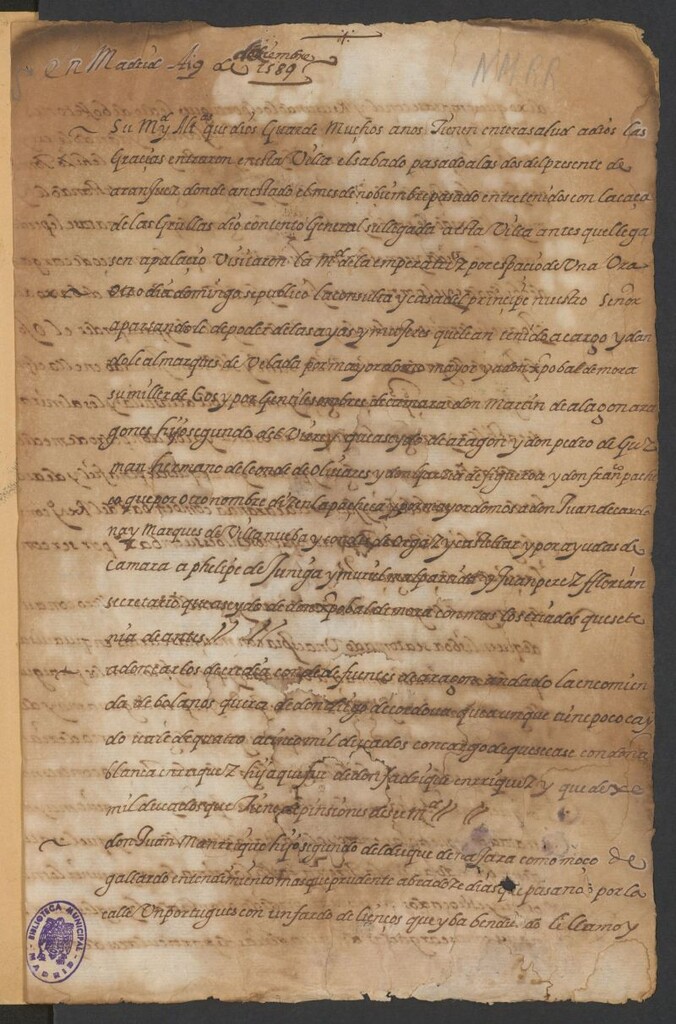 en Madrid A 9 de deziembre
1589
Su Mgd y Alts que dios Guarde Muchos anos Tienen entera salud a dios las
Graçias entraron en esta Villa el sabado pasado a las dos del presente de
aranjuez donde an estado el mes de nobiembre pasado entretenidos con la caça
de las Grullas dio contento General su llegada a esta Villa antes que llega
sen a palaçio Visitaron la Mgd de la emperatriz por espaçio de Una Ora
Otro dia domingo se publico la consulta y casa del prinçipe nuestro Señor
apartandole de poder de las ayas y mujeres que le an tenido a cargo y dan
dole al marques de Velada por mayordomo mayor y a don xpobal de mora
sumiller de Cos y por Gentiles ombres de camara don Martin de alagon ara
gones hijo segundo del Virrey que a seydo de aragon y don pedro de Guz
man hermano del conde de Olivares y don Garcia de figueroa y don franco pache
co que por otro nombre dizen la pacheca y por mayordomos a don Juan de carde
nas y Marques de Villanueba y conde de Orgaz y castellar y por ayudas de
Camara a phelipe de Juniga y y Juan perez florian
secretario que a seydo de don xpobal de mora con mas los criados que se te
nia de antes
a don carlos de eredia conde de fuentes de aragon an dado la encomien
da de bolaños que era de don diego de cordova que aunque tiene poco cay
do trae de quatro a cinco mil ducados con cargo de que se case con doña
blanca enrriquez hija que fue de don fadrique enrriquez y que dexe
mil ducados que Tiene de pinsiones de su mgd
don Juan Manrrique hijo segundo del duque de najara como moço de
gallardo entendimiento mas que prudente abra doze dias que pasano por la
calle Un portugues con un fardo de lienços que yba bendiendo le llamo y
BIBLIOTECA MUNICIPAL
MADRID